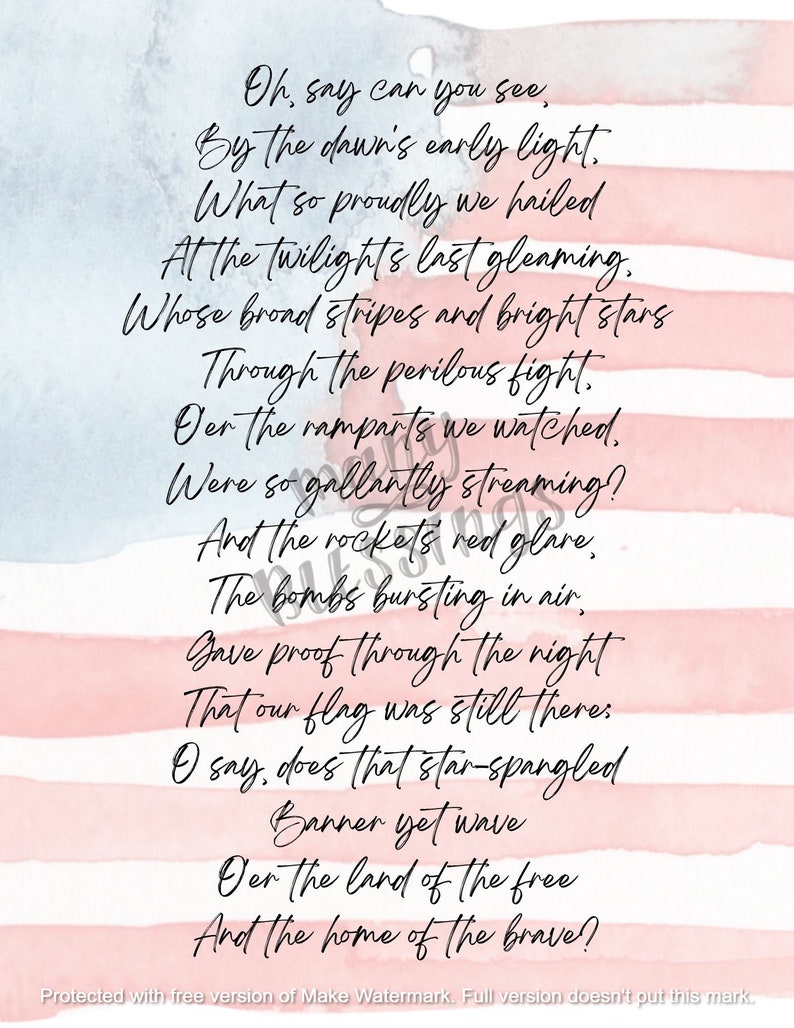 Oh, say can you see,
By the dawn's early light,
What so proudly we hailed
At the twilight's last gleaming,
Whose broad stripes and bright stars
Through the perilous fight,
O'er the ramparts we watched,
Were so gallantly streaming?
many
BLESSINGS
And the rockets' red glare,
The bombs bursting in air,
Gave proof through the night
That our flag was still there;
O say, does that star-spangled
Banner yet wave
O'er the land of the free
And the home of the brave?
Protected with free version of Make Watermark. Full version doesn't put this mark.